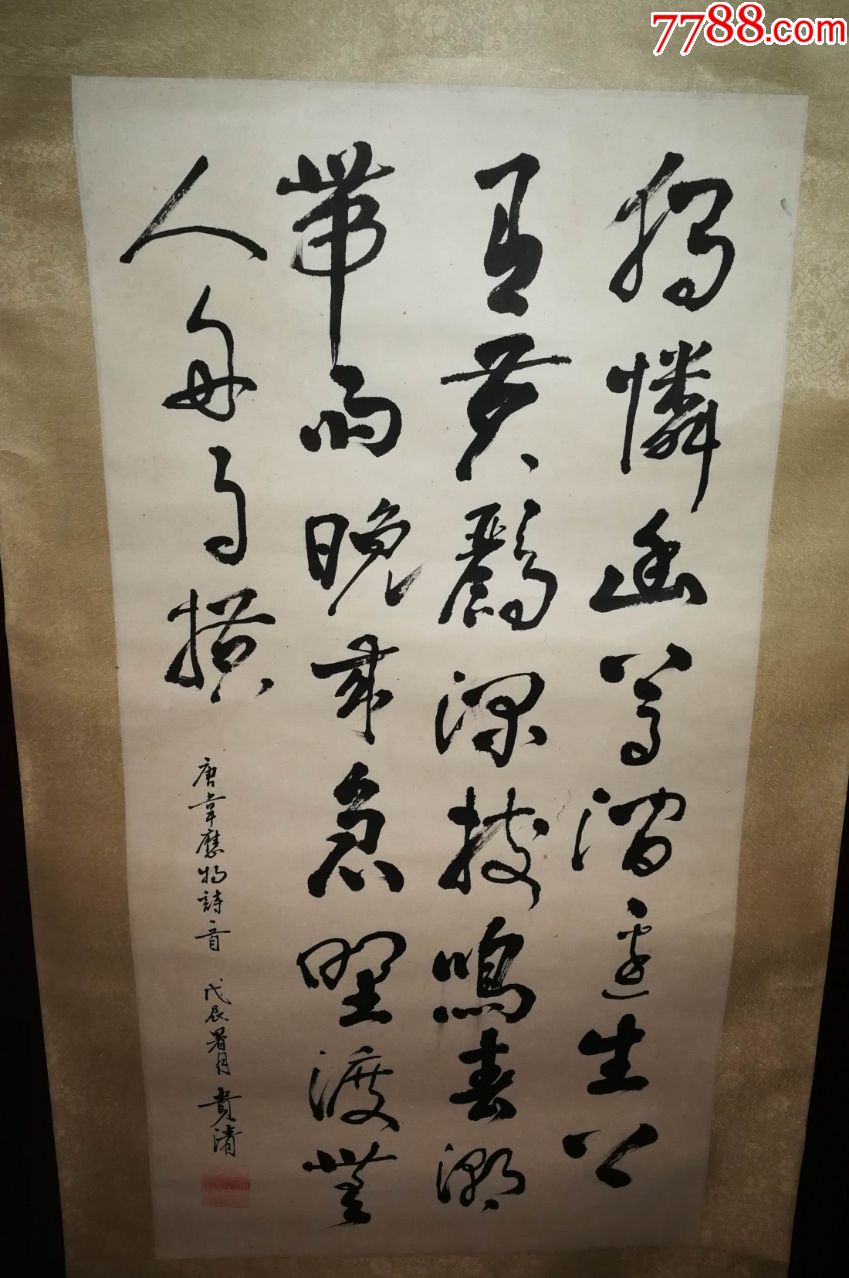 7788.com
獨憐幽草澗邊生上
有黄鸝深樹鳴春潮
帶雨晚來急野渡無
人舟自横
唐韋應物詩一首 戊辰暑月 貴清